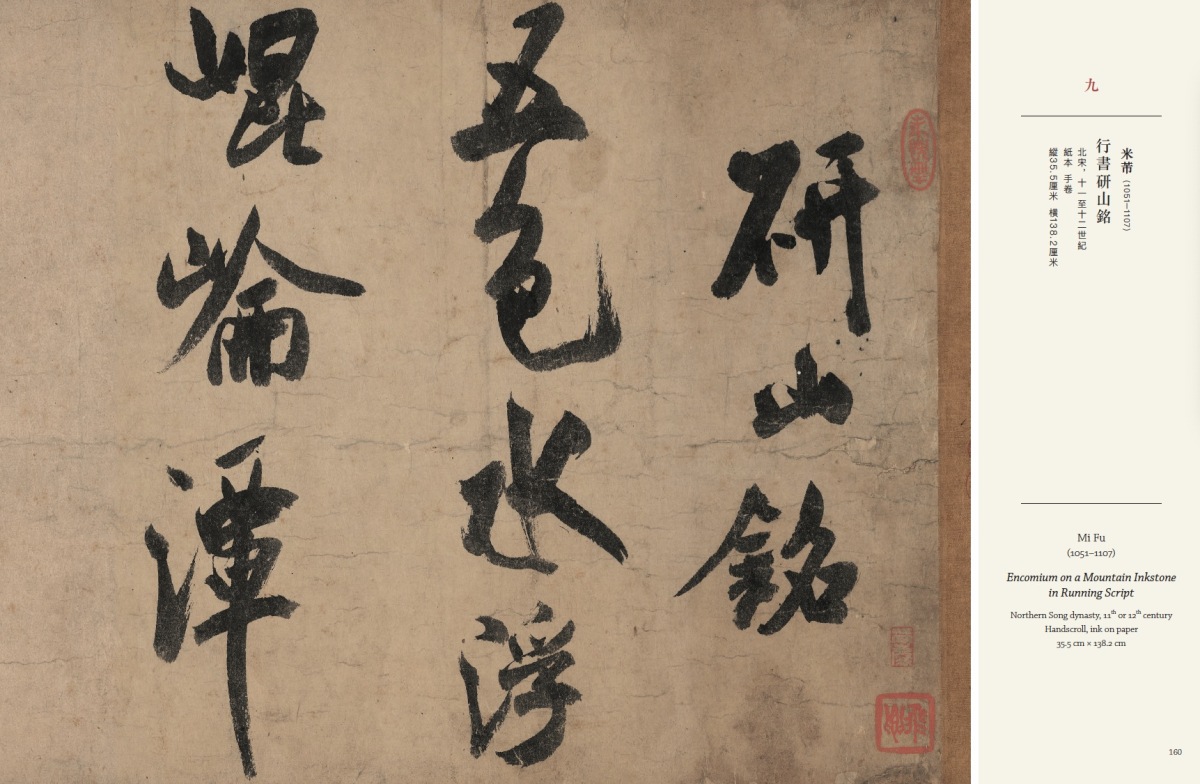 研山銘
五色水浮
崐崘潭
九
米芾 (1051–1107)
行書研山銘
北宋，十一至十二世紀
紙本 手卷
縱35.5厘米 橫138.2厘米
Mi Fu
(1051–1107)
Encomium on a Mountain Inkstone
in Running Script
Northern Song dynasty, 11th or 12th century
Handscroll, ink on paper
35.5 cm × 138.2 cm
160